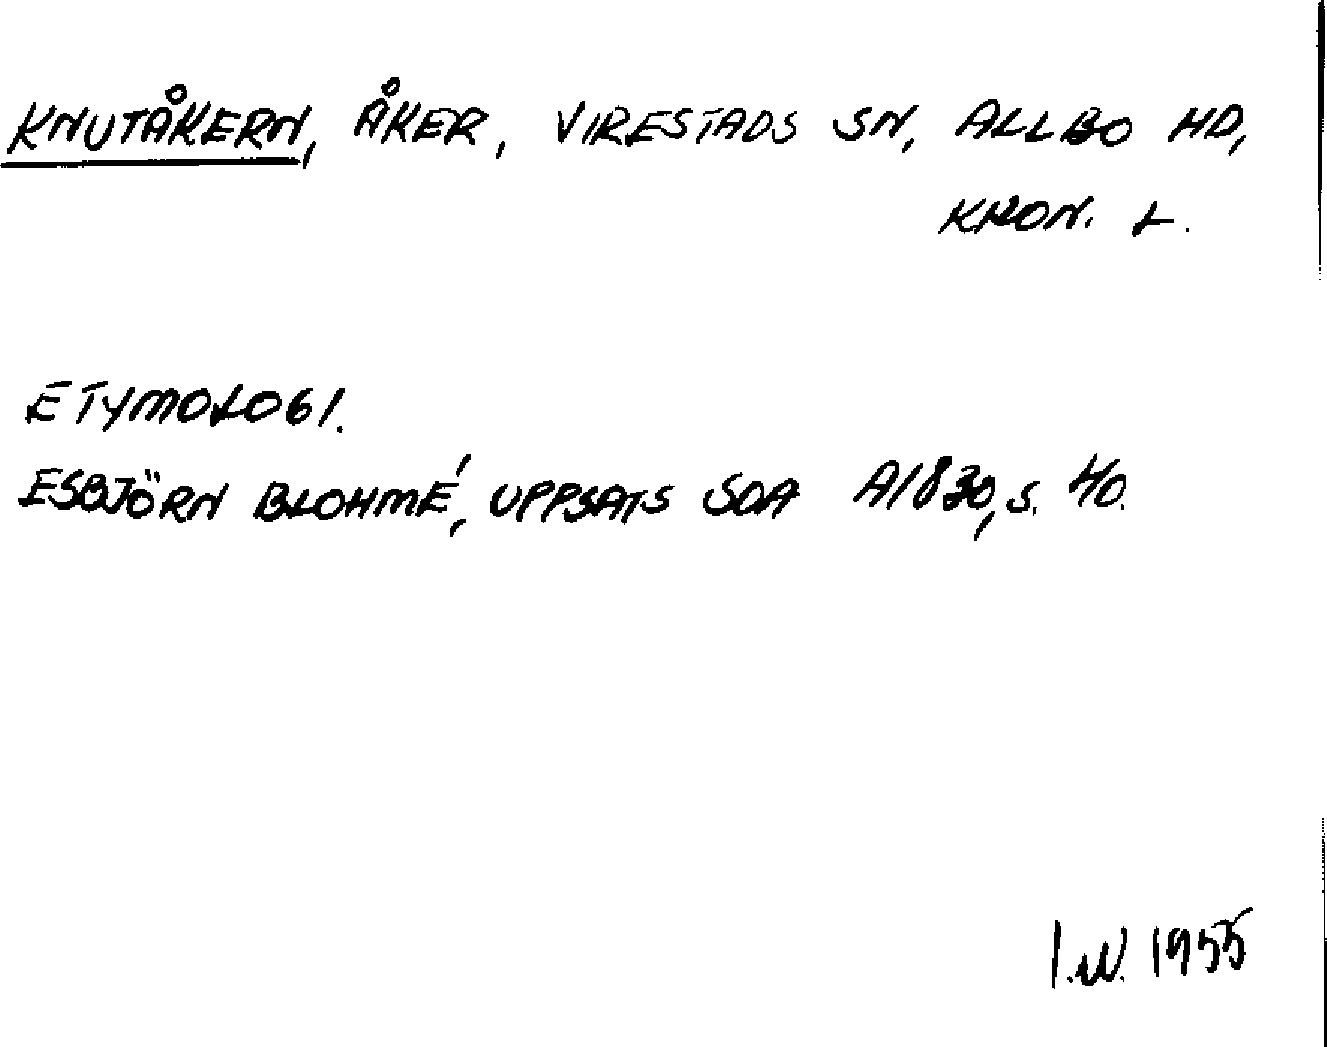 KNUTÅKERN, ÅKER, VIRESTADS SN, ALLBO HD,
KRON. L.
ETYMOLOGI.
ESBJÖRN BLOHMÉ, UPPSATS SOA A1830, S. 40.
I.W. 1955